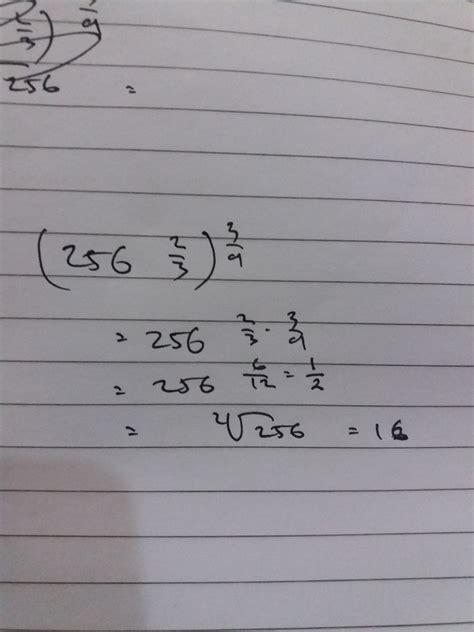 2/3) 3/4
256 =
(256 2/3) 3/4
= 256 2/3 · 3/4
= 256 6/12 = 1/2
= ∜256 = 16